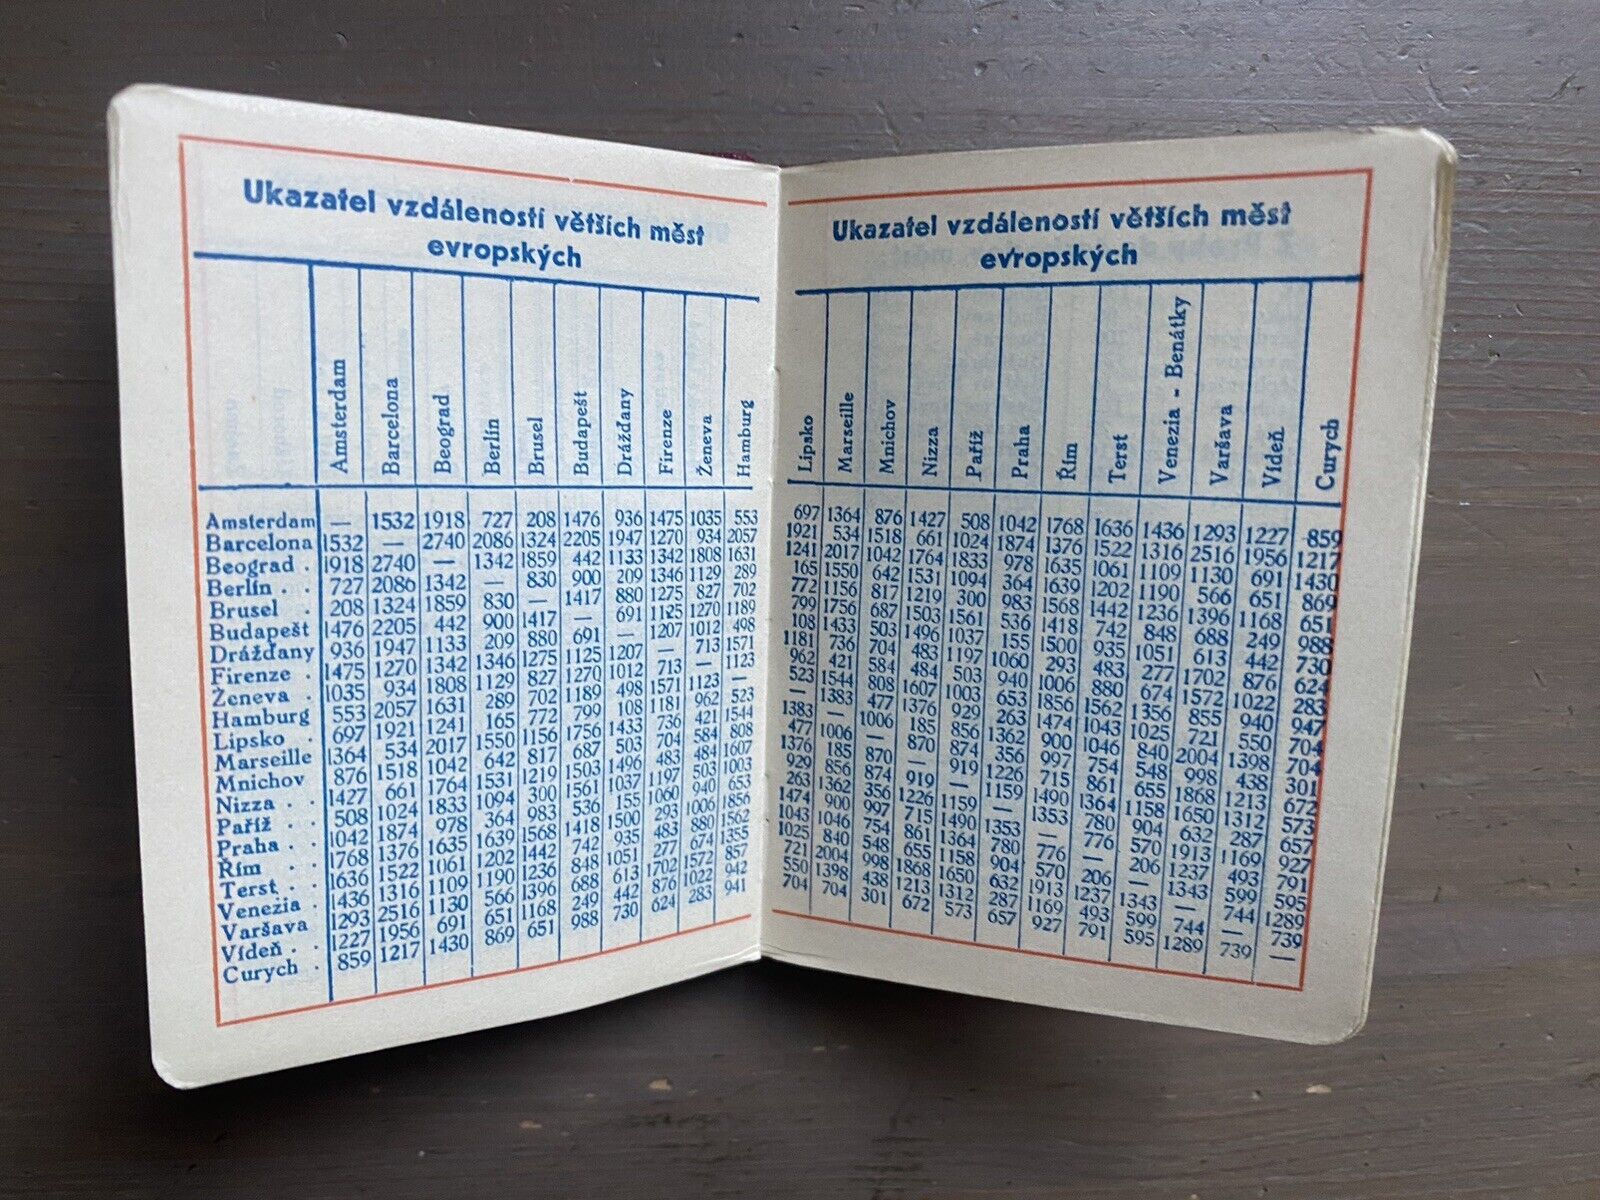 Ukazatel vzdáleností větších měst
evropských
Amsterdam Barcelona Beograd Berlín Brusel Budapešt Dráždany Firenze Ženeva Hamburg
Amsterdam — 1532 1918 727 208 1476 936 1475 1035 553
Barcelona 1532 — 2740 2086 1324 2205 1947 1270 934 2057
Beograd . 1918 2740 — 1342 1859 442 1133 1342 1808 1631
Berlín . . 727 2086 1342 — 830 900 209 1346 1129 289
Brusel . 208 1324 1859 830 — 1417 880 1275 827 702
Budapešt 1476 2205 442 900 1417 — 691 1125 1270 1189
Drážďany 936 1947 1133 209 880 691 — 1207 1012 498
Firenze . 1475 1270 1342 1346 1275 1125 1207 — 713 1571
Ženeva . 1035 934 1808 1129 827 1270 1012 713 — 1123
Hamburg 553 2057 1631 289 702 1189 498 1571 1123 —
Lipsko . 697 1921 1241 165 772 799 108 1181 962 523
Marseille 1364 534 2017 1550 1156 1756 1433 736 421 1544
Mnichov 876 1518 1042 642 817 687 503 704 584 808
Nizza . . 1427 661 1764 1531 1219 1503 1496 483 484 1607
Paříž . . 508 1024 1833 1094 300 1561 1037 1197 503 1003
Praha . . 1042 1874 978 364 983 536 155 1060 940 653
Řím . . 1768 1376 1635 1639 1568 1418 1500 293 1006 1856
Terst . . 1636 1522 1061 1202 1442 742 935 483 880 1562
Venezia . 1436 1316 1109 1190 1236 848 1051 277 674 1355
Varšava 1293 2516 1130 566 1396 688 613 1702 1572 857
Vídeň . . 1227 1956 691 651 1168 249 442 876 1022 942
Curych . 859 1217 1430 869 651 988 730 624 283 941
Ukazatel vzdáleností větších měst
evropských
Lipsko Marseille Mnichov Nizza Paříž Praha Řím Terst Venezia - Benátky Varšava Vídeň Curych
697 1364 876 1427 508 1042 1768 1636 1436 1293 1227 859
1921 534 1518 661 1024 1874 1376 1522 1316 2516 1956 1217
1241 2017 1042 1764 1833 978 1635 1061 1109 1130 691 1430
165 1550 642 1531 1094 364 1639 1202 1190 566 651 869
772 1156 817 1219 300 983 1568 1442 1236 1396 1168 651
799 1756 687 1503 1561 536 1418 742 848 688 249 988
108 1433 503 1496 1037 155 1500 935 1051 613 442 730
1181 736 704 483 1197 1060 293 483 277 1702 876 624
962 421 584 484 503 940 1006 880 674 1572 1022 283
523 1544 808 1607 1003 653 1856 1562 1356 855 940 947
— 1383 477 1376 929 263 1474 1043 1025 721 550 704
1383 — 1006 185 856 1362 900 1046 840 2004 1398 704
477 1006 — 870 874 356 997 754 548 998 438 301
1376 185 870 — 919 1226 715 861 655 1868 1213 672
929 856 874 919 — 1159 1490 1364 1158 1650 1312 573
263 1362 356 1226 1159 — 1353 780 904 632 287 657
1474 900 997 715 1490 1353 — 776 570 1913 1169 927
1043 1046 754 861 1364 780 776 — 206 1237 493 791
1025 840 548 655 1158 904 570 206 — 1343 599 595
721 2004 998 1868 1650 632 1913 1237 1343 — 744 1289
550 1398 438 1213 1312 287 1169 493 599 744 — 739
704 704 301 672 573 657 927 791 595 1289 739 —